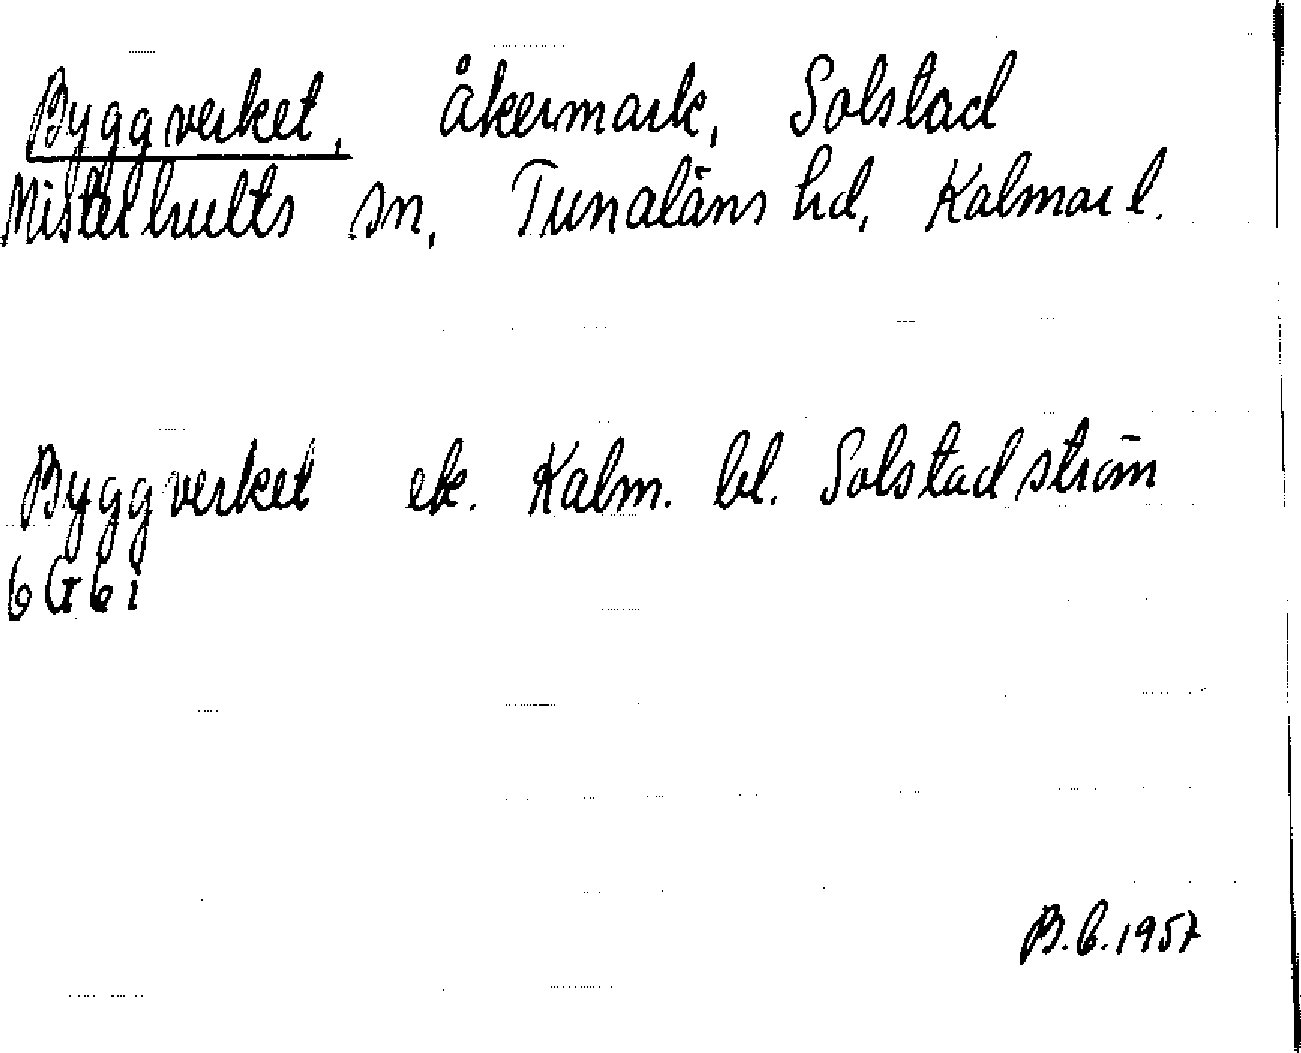 Byggverket, åkermark, Solstad
Misterhults sn, Tunaläns hd, Kalmar l.
Byggverket ek. Kalm. bl. Solstadström
6G6i
B.G.1957